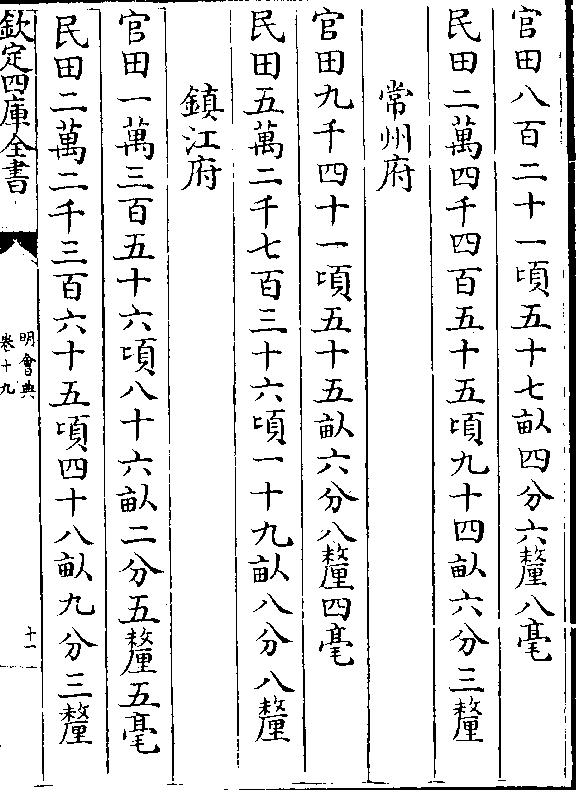 官田八百二十一頃五十七畝四分六釐八毫
民田二萬四千四百五十五頃九十四畝六分三釐
常州府
官田九千四十一頃五十五畝六分八釐四毫
民田五萬二千七百三十六頃一十九畝八分八釐
鎮江府
官田一萬三百五十六頃八十六畝二分五釐五毫
民田二萬二千三百六十五頃四十八畝九分三釐
欽定四庫全書
明會典
卷十九
十一